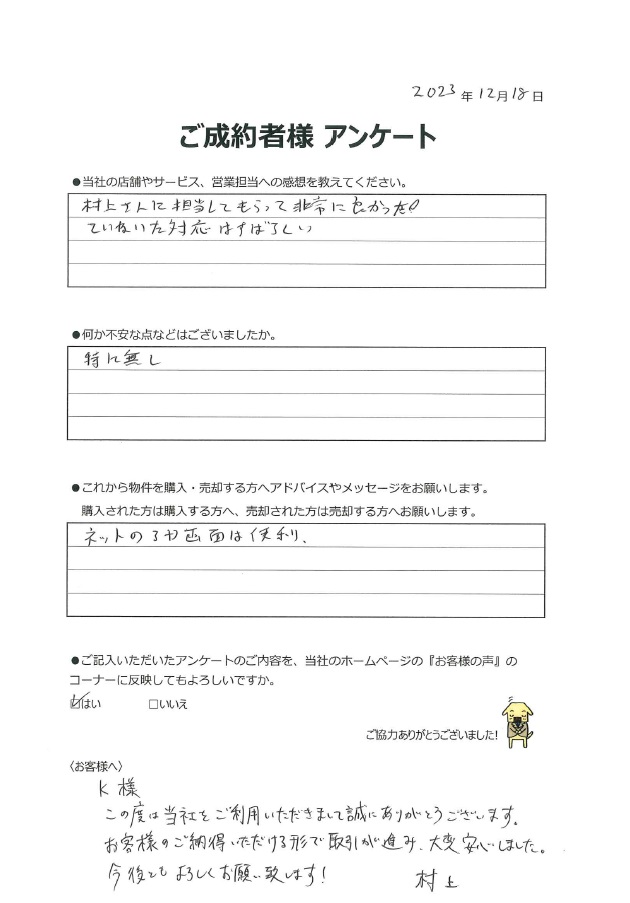 2023年12月18日
ご成約者様 アンケート
●当社の店舗やサービス、営業担当への感想を教えてください。
村上さんに担当してもらって非常に良かった!
ていねいな対応はすばらしい
●何か不安な点などはございましたか。
特に無し
●これから物件を購入・売却する方へアドバイスやメッセージをお願いします。
購入された方は購入する方へ、売却された方は売却する方へお願いします。
ネットの 画面は便利、
●ご記入いただいたアンケートのご内容を、当社のホームページの『お客様の声』の
コーナーに反映してもよろしいですか。
☑はい □いいえ
ご協力ありがとうございました!
〈お客様へ〉
K様
この度は当社をご利用いただきまして誠にありがとうございます。
お客様のご納得いただける形で取引が進み、大変安心しました。
今後ともよろしくお願い致します!
村上